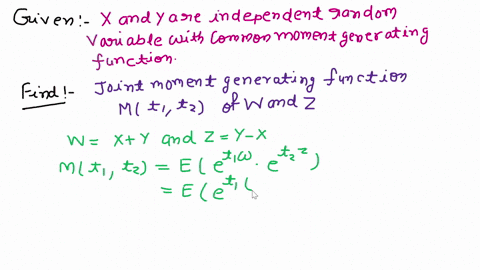 Given:- X and Y are independent random
Variable with Common moment generating
function.
Find!:- Joint moment generating function
M(t₁, t₂) of W and Z
W = X+Y and Z = Y-X
M(t₁, t₂) = E(e^{t₁ω} · e^{t₂z})
= E(e^{t₁(